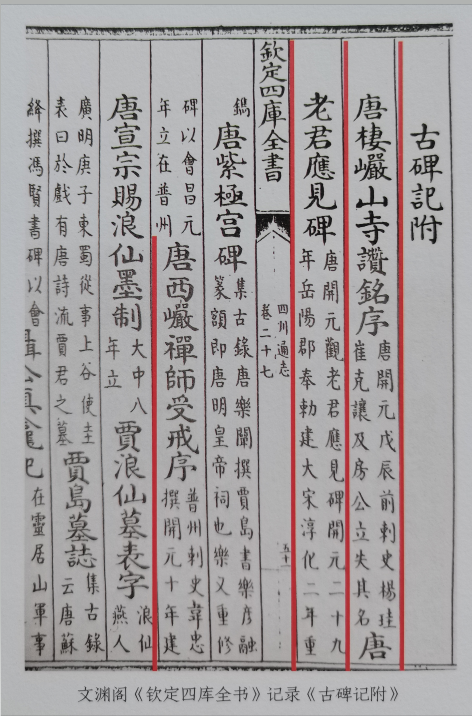 古碑記附
唐棲巖山寺讚銘序 唐開元戊辰前刺史楊珪崔克讓及房公立失其名 唐
老君應見碑 唐開元觀老君應見碑開元二十九年岳陽郡奉勅建大宋淳化二年重
欽定四庫全書
四川通志
卷二十七
五十一
鐫 唐紫極宫碑 集古錄唐樂闡撰賈島書樂彦融篆額即唐明皇帝祠也樂又重修
碑以會昌元年立在普州 唐西巖禪師受戒序 普州刺史韋忠撰開元十年建
唐宣宗賜浪仙墨制 大中八年立 賈浪仙墓表字 浪仙燕人
廣明庚子東蜀從事上谷使圭表曰於戲有唐詩流賈君之墓 賈島墓誌 集古錄云唐蘇
絳撰馮賢書碑以會 在靈居山軍事
文渊阁《钦定四库全书》记录《古碑记附》